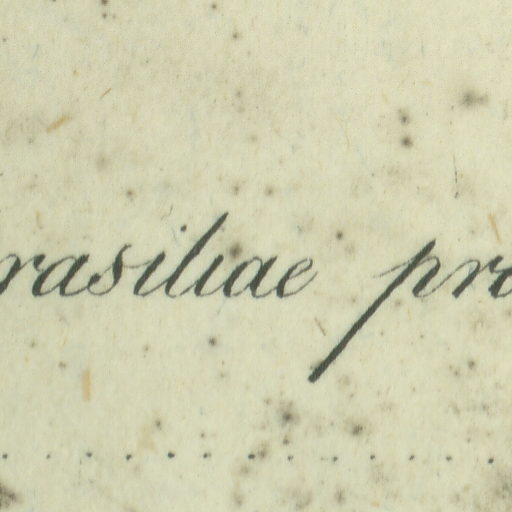 rasiliae pro